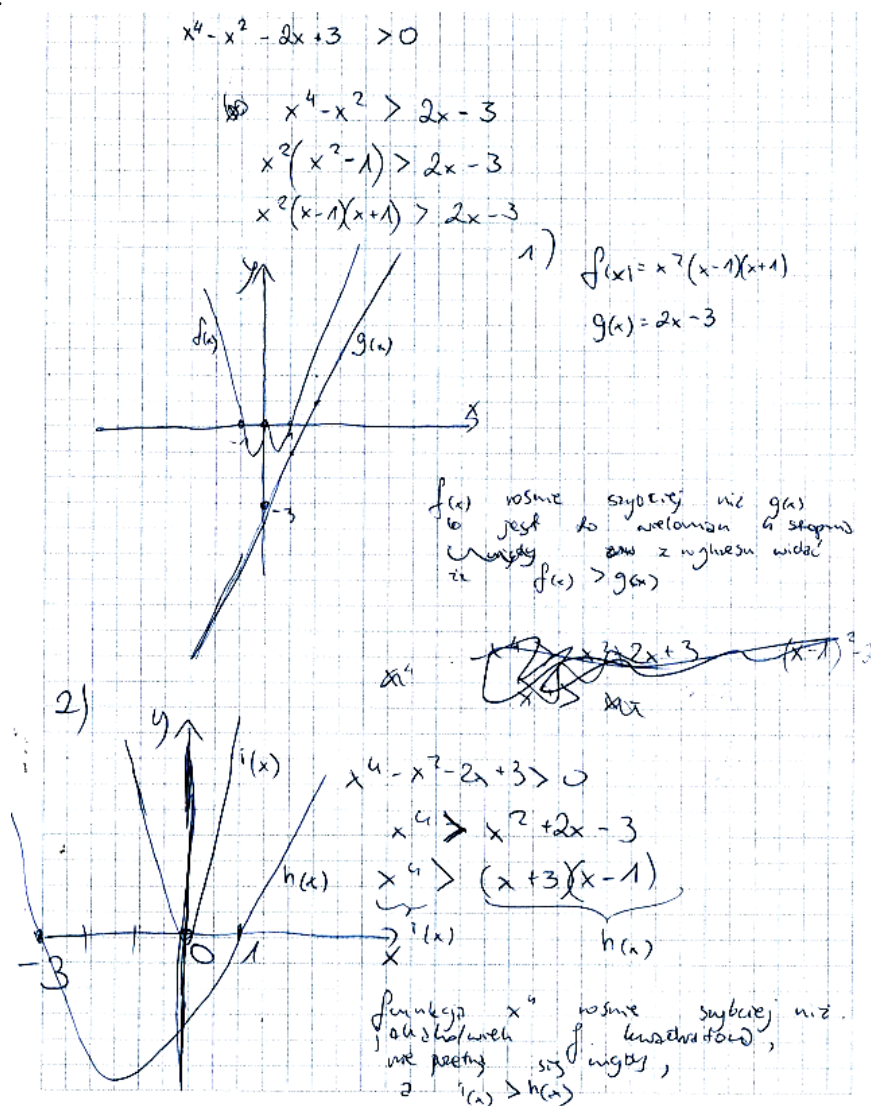 x⁴ - x² - 2x + 3 > 0
x⁴ - x² > 2x - 3
x²(x² - 1) > 2x - 3
x²(x-1)(x+1) > 2x - 3
1) f(x) = x²(x-1)(x+1)
g(x) = 2x - 3
y
f(x) g(x)
x
-1 1
-3
f(x) rośnie szybciej niż g(x)
bo jest to wielomian 4 stopnia
z wykresu widać
iż f(x) > g(x)
2)
y
i(x)
h(x)
x
-3 0 1
x⁴ - x² - 2x + 3 > 0
x⁴ > x² + 2x - 3
x⁴ > (x+3)(x-1)
i(x) h(x)
funkcja x⁴ rośnie szybciej niż
jakakolwiek f. kwadratowa,
nie przetną się nigdy,
a i(x) > h(x)